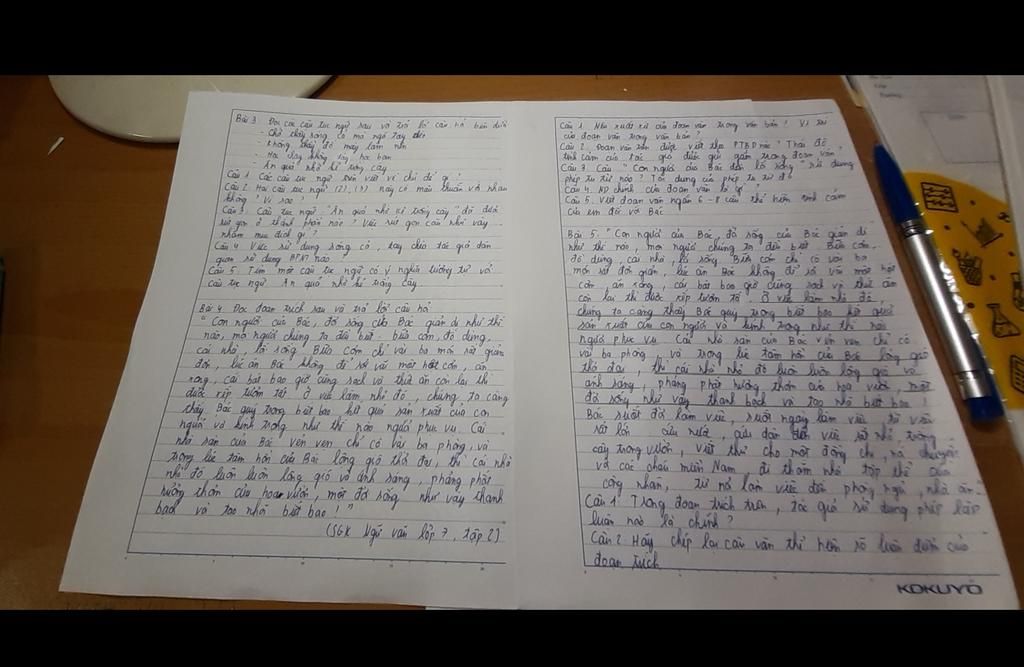 Bài 3 Đọc các câu tục ngữ sau và trả lời câu hỏi bên dưới
- Chớ thấy sóng cả mà ngã tay chèo
- Không thầy đố mày làm nên
- Học thầy không tày học bạn
- Ăn quả nhớ kẻ trồng cây
Câu 1 Các câu tục ngữ trên viết về chủ đề gì?
Câu 2 Hai câu tục ngữ (2), (3) này có mâu thuẫn với nhau
không? Vì sao?
Câu 3 Câu tục ngữ "Ăn quả nhớ kẻ trồng cây" đã được
rút gọn ở thành phần nào? Việc rút gọn câu như vậy
nhằm mục đích gì?
Câu 4 Việc sử dụng sóng cả, tay chèo tác giả dân
gian sử dụng BPNT nào
Câu 5 Tìm một câu tục ngữ có ý nghĩa tương tự với
câu tục ngữ Ăn quả nhớ kẻ trồng cây
Bài 4 Đọc đoạn trích sau và trả lời câu hỏi
"Con người của Bác, đời sống của Bác giản dị như thế
nào, mọi người chúng ta đều biết - bữa cơm, đồ dùng,
cái nhà, lối sống. Bữa cơm chỉ vài ba món rất giản
đơn, lúc ăn Bác không để rơi vãi một hột cơm, ăn
xong, cái bát bao giờ cũng sạch và thức ăn còn lại thì
được xếp tươm tất. Ở việc làm nhỏ đó, chúng ta càng
thấy Bác quý trọng biết bao kết quả sản xuất của con
người và kính trọng như thế nào người phục vụ. Cái
nhà sàn của Bác vẻn vẹn chỉ có vài ba phòng, và
trong lúc tâm hồn của Bác lộng gió thời đại, thì cái nhà
nhỏ đó luôn luôn lộng gió và ánh sáng, phảng phất
hương thơm của hoa vườn, một đời sống như vậy thanh
bạch và tao nhã biết bao!"
(SGK Ngữ văn lớp 7, tập 2)
Câu 1 Nêu xuất xứ của đoạn văn trong văn bản? Vị trí
của đoạn văn trong văn bản?
Câu 2 Đoạn văn trên được viết theo PTBĐ nào? Thái độ
tình cảm của tác giả được gửi gắm trong đoạn văn?
Câu 3 Câu "Con người của Bác đến lối sống" sử dụng
phép tu từ nào? Tác dụng của phép tu từ đó
Câu 4. ND chính của đoạn văn là gì?
Câu 5. Viết đoạn văn ngắn 6-8 câu thể hiện tình cảm
của em đối với Bác
Bài 5: "Con người của Bác, đời sống của Bác giản dị
như thế nào, mọi người chúng ta đều biết: Bữa cơm,
đồ dùng, cái nhà, lối sống. Bữa cơm chỉ có vài ba
món rất đơn giản, lúc ăn Bác không để rơi vãi một hột
cơm, ăn xong, cái bát bao giờ cũng sạch và thức ăn
còn lại thì được xếp tươm tất. Ở việc làm nhỏ đó
chúng ta càng thấy Bác quý trọng biết bao kết quả
sản xuất của con người và kính trọng như thế nào
người phục vụ. Cái nhà sàn của Bác vẻn vẹn chỉ có
vài ba phòng, và trong lúc tâm hồn của Bác lộng gió
thời đại, thì cái nhà nhỏ đó luôn luôn lộng gió và
ánh sáng, phảng phất hương thơm của hoa vườn, một
đời sống như vậy thanh bạch và tao nhã biết bao!
Bác suốt đời làm việc, suốt ngày làm việc, từ việc
rất lớn: cứu nước, cứu dân đến việc rất nhỏ, trồng
cây trong vườn, viết thư cho một đồng chí, nói chuyện
với các cháu miền Nam, đi thăm nhà tập thể của
công nhân, từ nơi làm việc đến phòng ngủ, nhà ăn
Câu 1 Trong đoạn trích trên, tác giả sử dụng phép lập
luận nào là chính?
Câu 2 Hãy chép lại câu văn thể hiện rõ luận điểm của
đoạn trích
KOKUYO